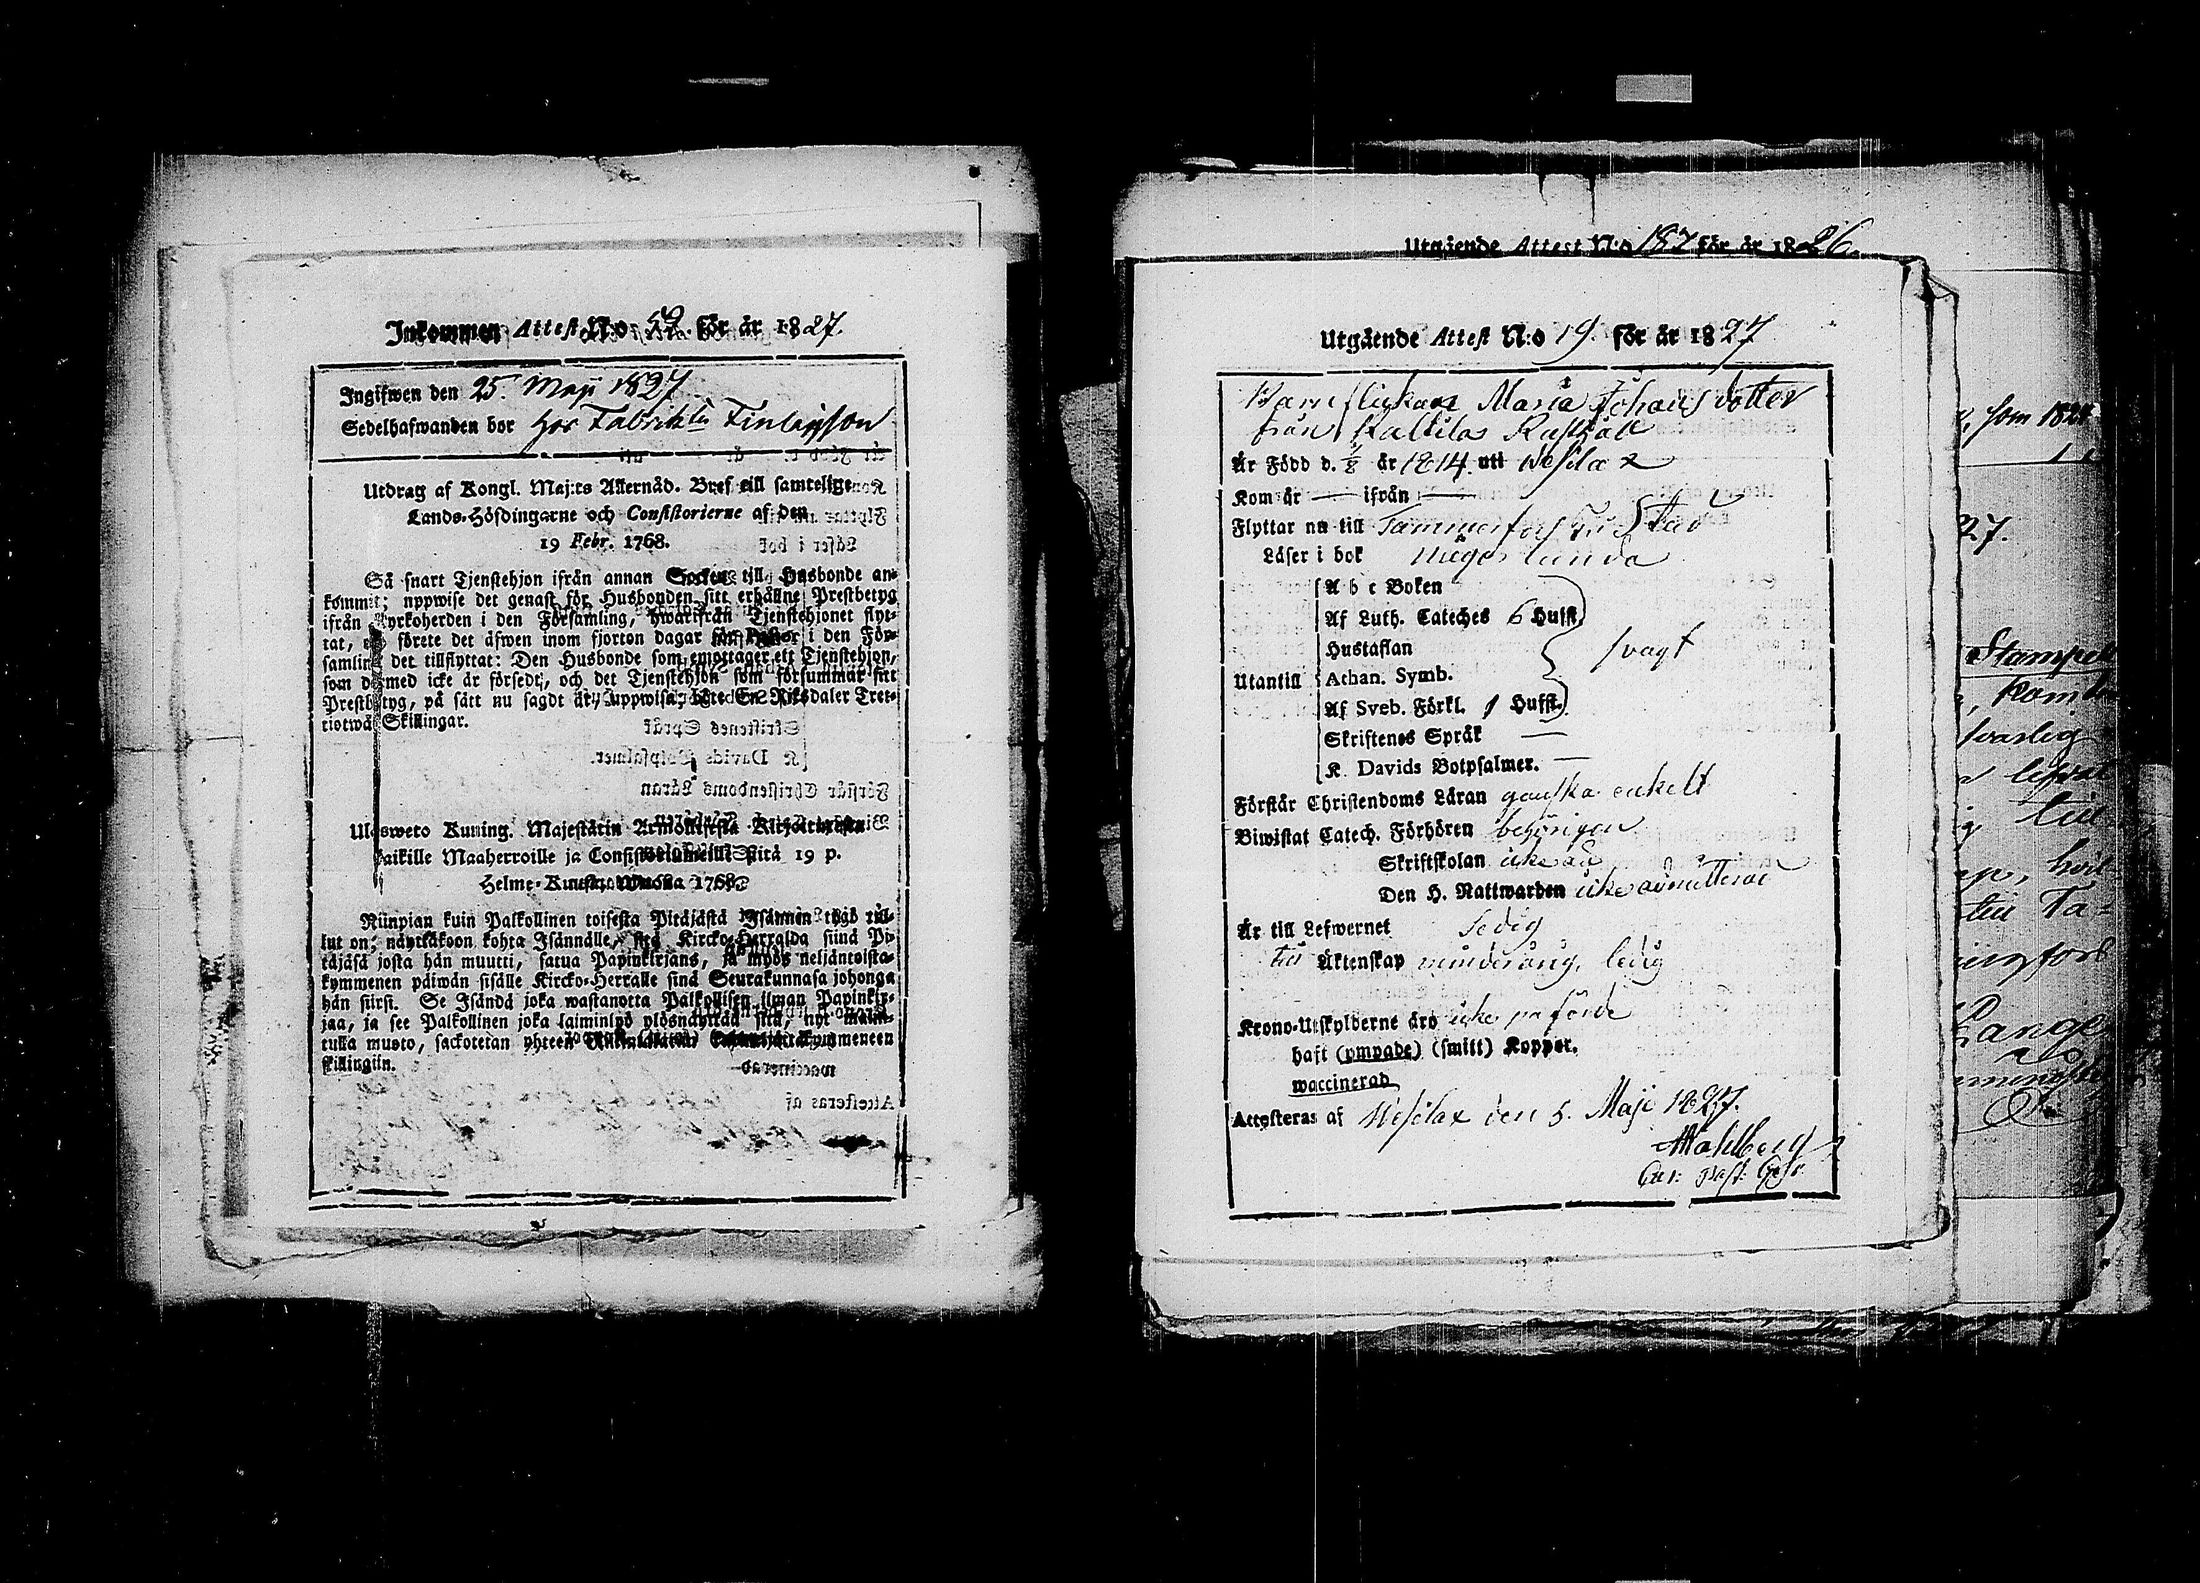 Inkommen Attest N:o 59. för år 1827.
Ingifwen den 25. Maji 1827
Sedelhafwanden bor hos Fabrik Finlayson
Utdrag af Kongl. Maj:ts Allernåd. Bref till samtelige
Lands-Höfdingarne och Consistorierne af den
19 Febr. 1768.
Så snart Tjenstehjon ifrån annan Socken till Husbonde an-
kommit; uppwise det genast för Husbonden sitt erhållne Prestbetyg
ifrån Kyrkoherden i den Församling, hwarifrån Tjenstehjonet flyt-
tat, och förete det äfwen inom fjorton dagar för Pastor i den För-
samling det tillflyttat: Den Husbonde som emottager ett Tjenstehjon,
som dermed icke är försedt, och det Tjenstehjon som försummar sitt
Prestbetyg, på sätt nu sagdt är, uppwisa, böte En Riksdaler Tret-
tiotwå Skillingar.
Ulosweto Kuning. Majestätin Armollisesta Kirjoituxesta
kaikille Maaherroille ja Consistoriumeille sitä 19 p.
Helme-Kuusa Wuonna 1768.
Niinpian kuin Palkollinen toisesta Pitäjästä Isännän tygö tul-
lut on; näyttäköön kohta Isännälle, sitä Kircko-Herralda siinä Pi-
täjäsä josta hän muutti, saatua Papinkirjans, ja myös neljäntoista-
kymmenen päiwän sisälle Kircko-Herralle sinä Seurakunnasa johonga
hän siirsi. Se Isändä joka wastanotta Palkollisen ilman Papinkir-
jaa, ja see Palkollinen joka laiminlyö ylösnäyttää sitä, nyt main-
tulla muoto, sackotetan yhteen Riksidalarin kolmenkymmeneen
skillingiin.
Utgående Attest N:o 187 för år 1826.
Utgående Attest N:o 19. för år 1827
Barnflickan Maria Johansdotter
från Kaltila Rusthåll
Är Född d. 1/8 år 1814. uti Wesilax
Kom år — ifrån —
Flyttar nu till Tammerfors Stad
Läser i bok någorlunda
A b c Boken
Af Luth. Cateches 6 Hufst.
Hustaflan
svagt
Utantill
Athan. Symb.
Af Sveb. Förkl. 1 Hufst.
Skriftenes Språk —
K. Davids Botpsalmer. —
Förstår Christendoms Läran ganska enkelt
Biwistat Catech. Förhören behörigen
Skriftskolan icke än
Den H. Nattwarden icke admitterad
Är till Lefwernet Sedig
till Äktenskap minderårig, ledig
Krono-Utskylderne äro icke påförde
haft (ympade) (smitt) Koppor.
waccinerad
Attesteras af Wesilax den 5. Maji 1827.
Mahlberg
, som 1824
27.
Stampel
till
Ta-